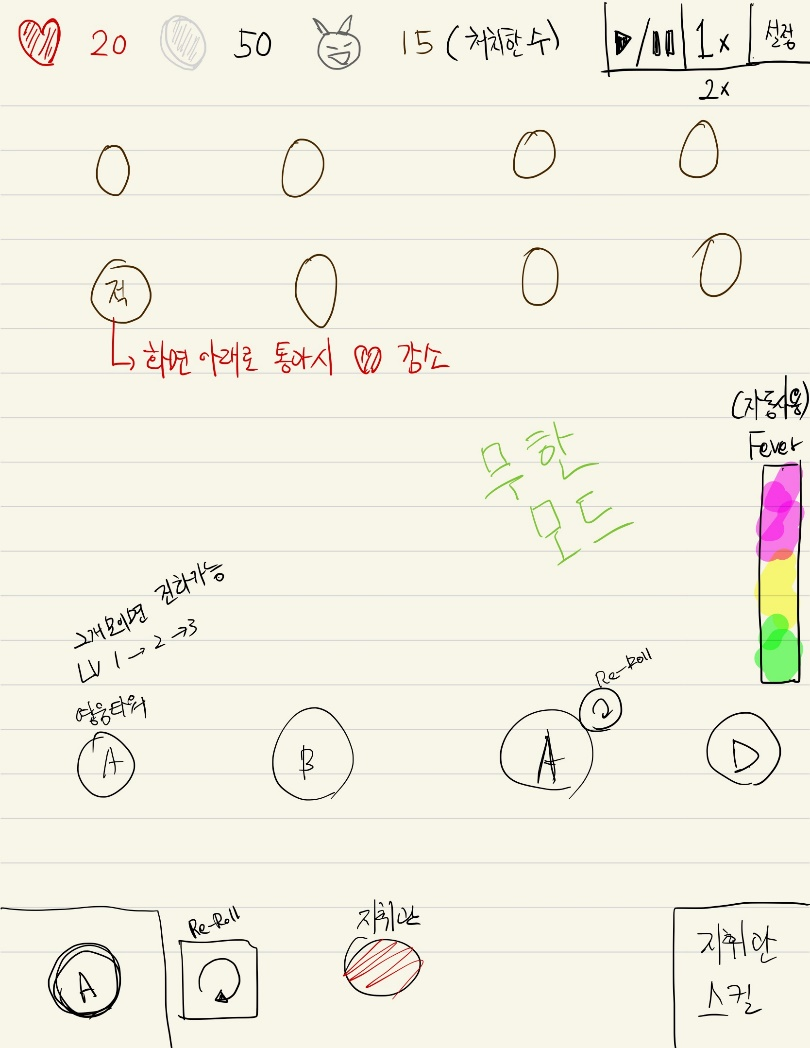 20 50 15 (처치한 수) ▶/❚❚ 1x 설정
2x
적
화면 아래로 통아시 ♡ 감소
(자동사용)
Fever
무한
모드
2개 모이면 진화가능
LV 1 → 2 → 3
영웅타워
Re-Roll
A B A D
Re-Roll
지휘관
A
지휘관
스킬